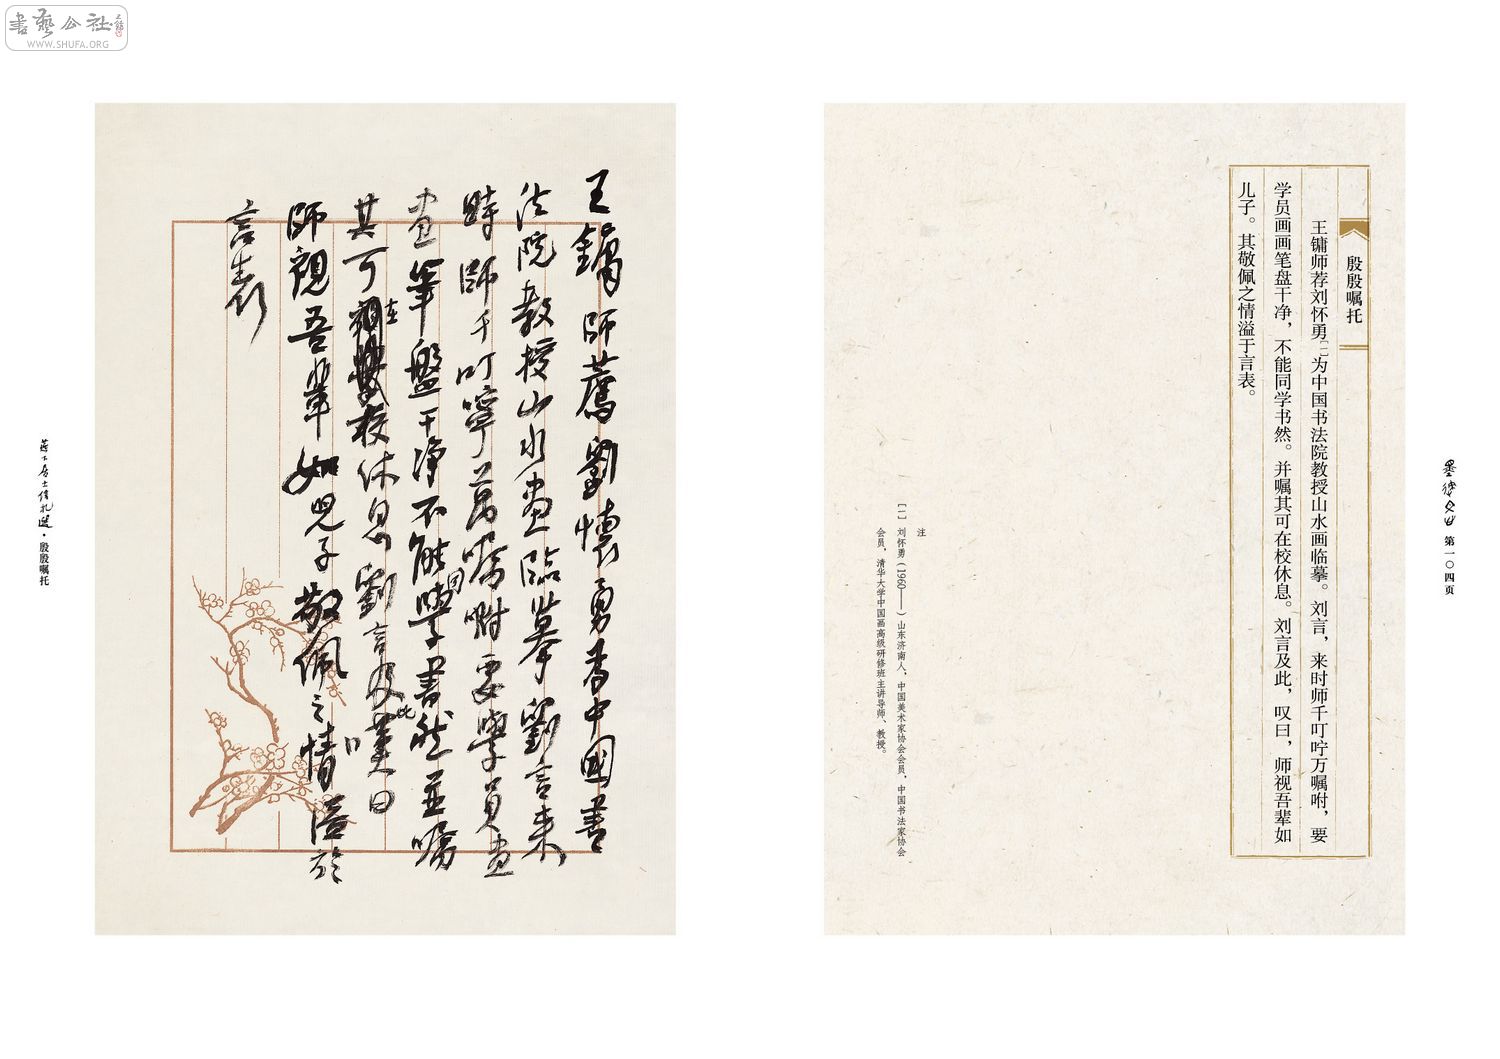 書藝公社
WWW.SHUFA.ORG
第一〇四页
殷殷嘱托
王镛师荐刘怀勇[一]为中国书法院教授山水画临摹。刘言，来时师千叮咛万嘱咐，要
学员画画笔盘干净，不能同学书然。并嘱其可在校休息。刘言及此，叹曰，师视吾辈如
儿子。其敬佩之情溢于言表。
注
[一] 刘怀勇（1960——）山东济南人，中国美术家协会会员，中国书法家协会
会员，清华大学中国画高级研修班主讲导师、教授。
王鏞師薦劉懷勇為中國書
法院教授山水畫臨摹劉言来
時師千叮嚀萬嘱咐要學員画
画筆盤干净不能同學書然並嘱
其可在校休息劉言及此嘆曰
師視吾辈如児子敬佩之情溢於
言表
蒋山居士信札選·殷殷嘱托